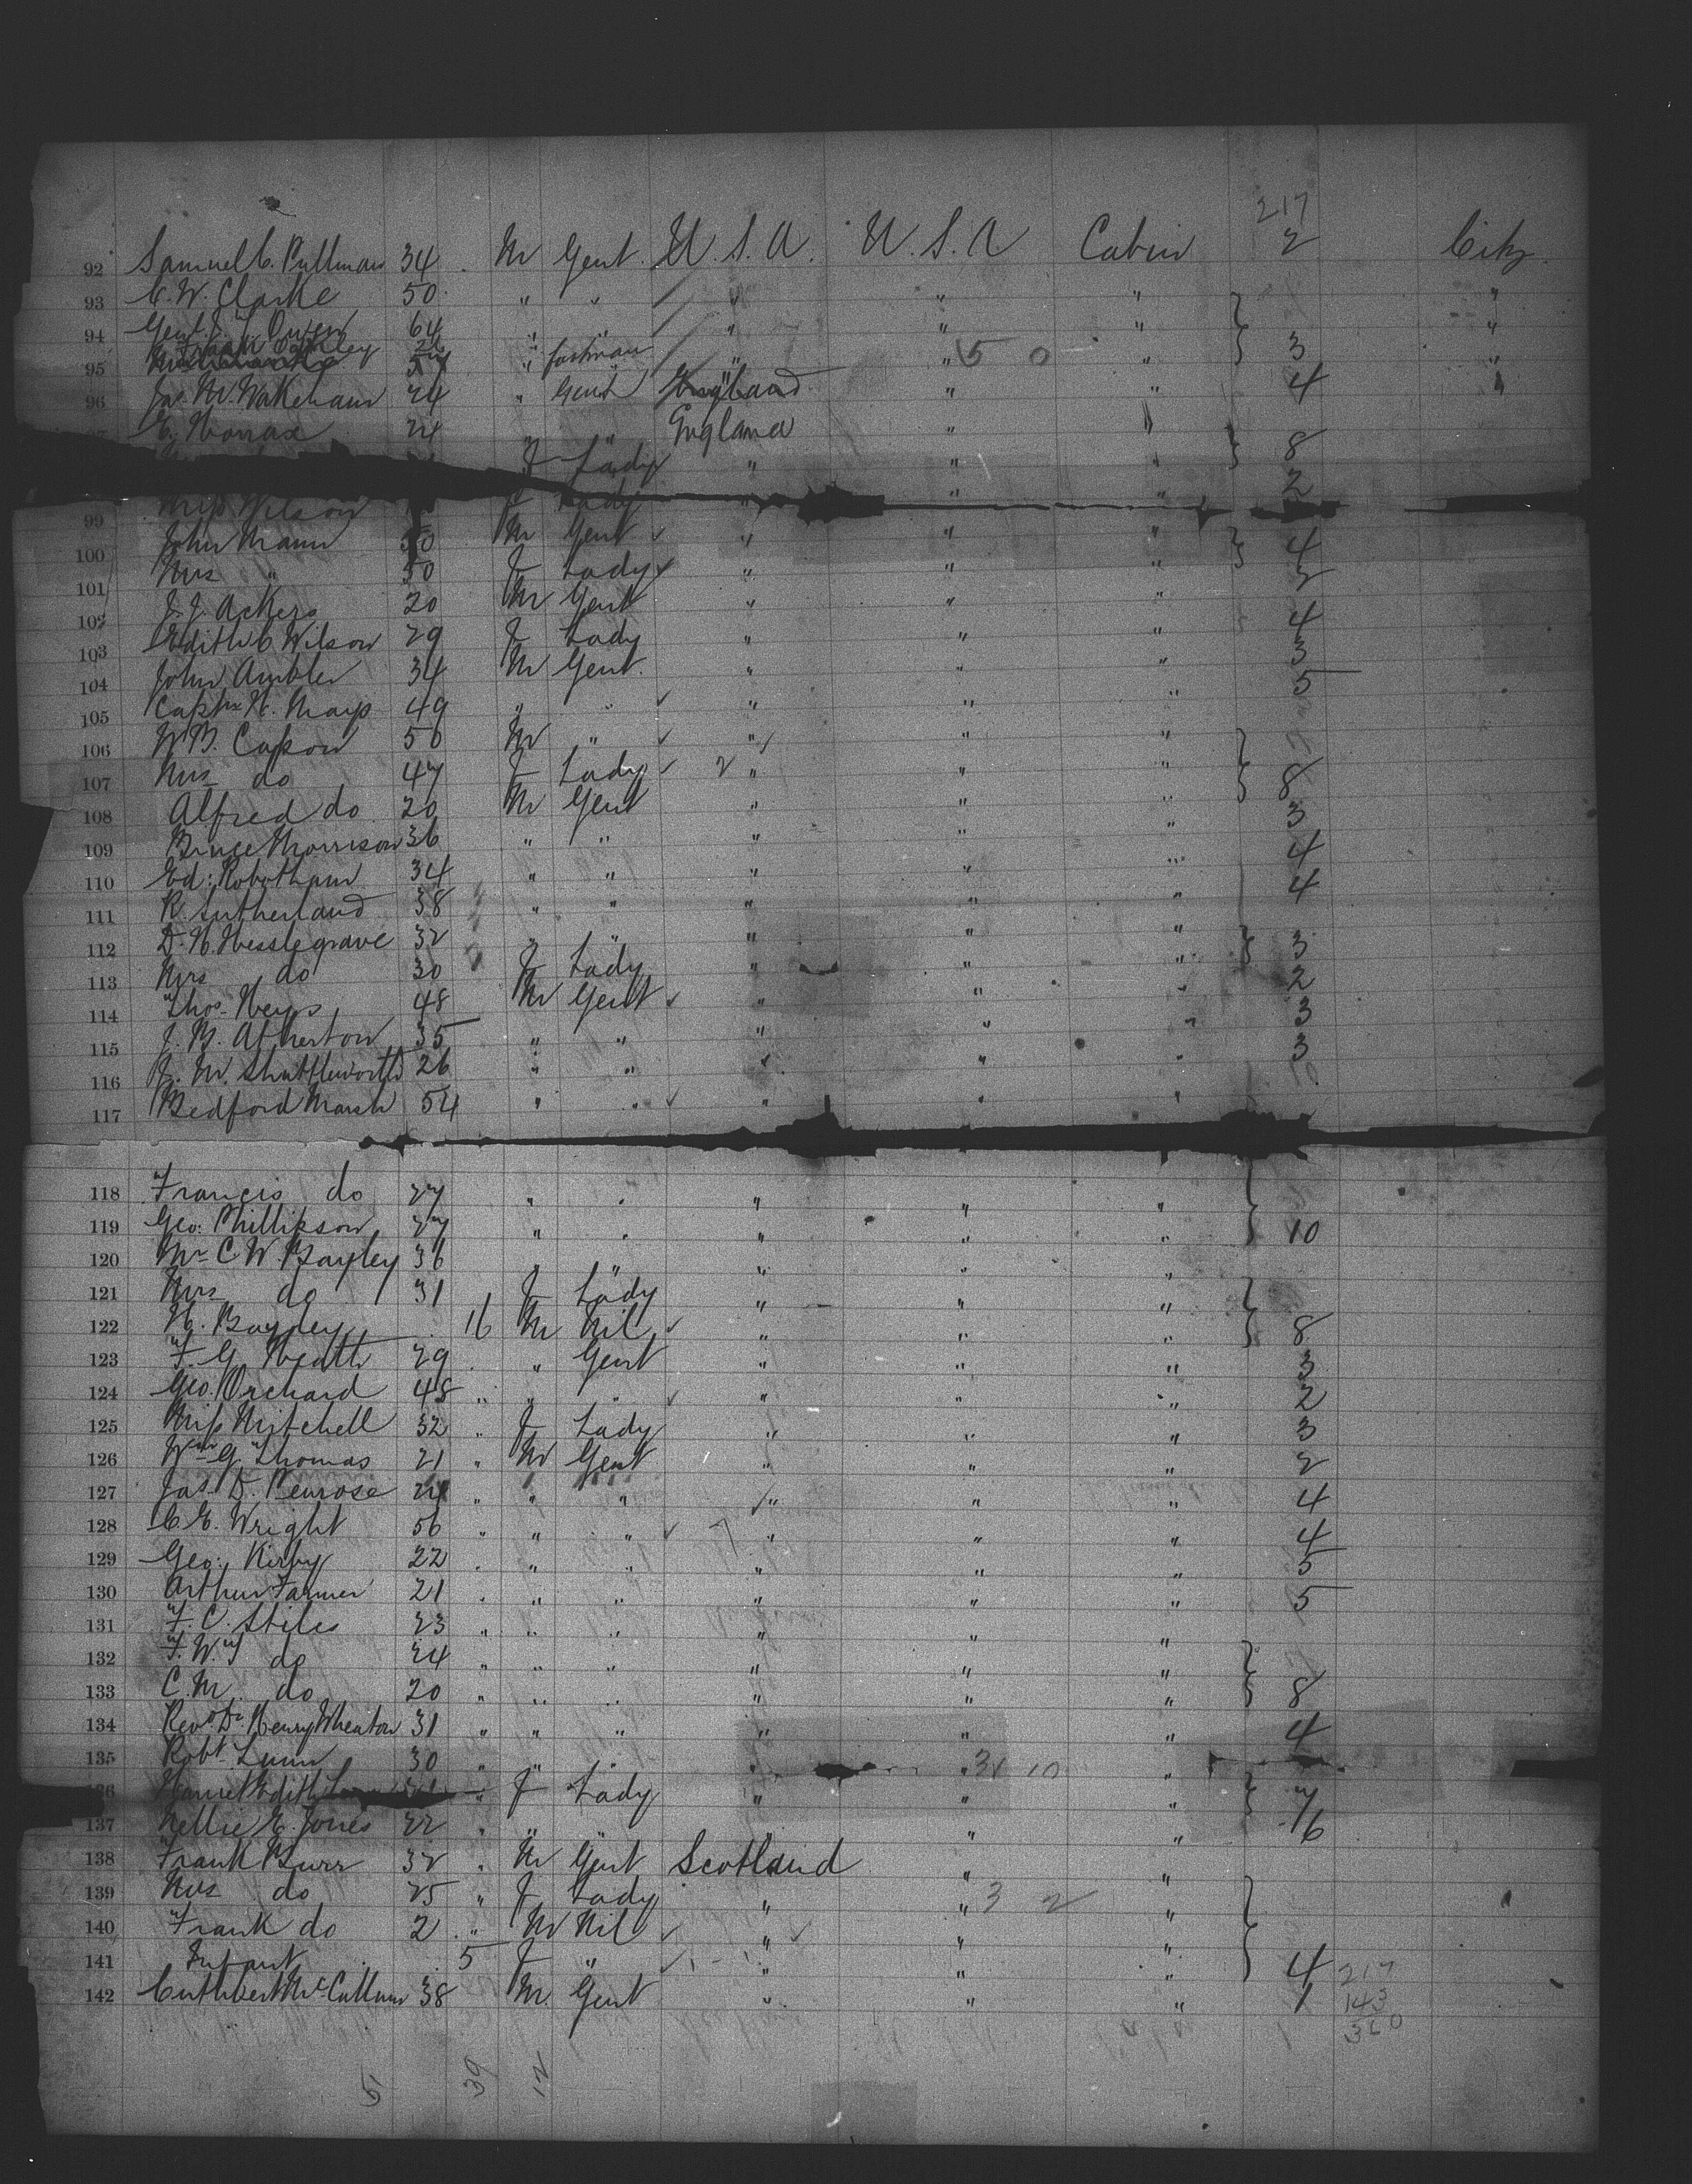 217
92 Samuel C. Pullman 34 M Gent. U.S.A. U.S.A. Cabin 2 City.
93 C. W. Clarke 50 " " " " " "
94 Genl. J. T. Owen 64 " " " " " "
95 Frank Oakley " footman " " 50 " 3 "
96 Jas. M. Wakeham 24 " Gent England " " 4 "
E. Horrax 24 " England " "
F Lady " " " 8
99 Miss Wilson F Lady " " " 2
100 John Mann 50 M Gent " " "
101 Mrs " 50 F Lady " " " 4
102 J. J. Ackers 20 M Gent " " " 2
103 Edith C Wilson 29 F Lady " " " 4
104 John Ambler 34 M Gent. " " " 3
105 Captn H. Mays 49 " " " " " 5
106 W. B. Capson 50 M " " " "
107 Mrs do 47 F Lady 2 " " "
108 Alfred do 20 M Gent " " " 8
109 Bruce Morrison 36 " " " " " 3
110 Ed: Robotham 34 " " " " " 4
111 R. Sutherland 38 " " " " " 4
112 D. H. Hesslegrave 32 " " " " "
113 Mrs do 30 F Lady " " " 3
114 Thos. Heys 48 M Gent " " " 2
115 J. B. Atherton 35 " " " " " 3
116 J. M. Shuttleworth 26 " " " " " 3
117 Bedford Marsh 54 " " " " "
118 Francis do 27 " " " " "
119 Geo: Phillipson 27 " " " " " 10
120 Mr C. W. Bayley 36 " " " " "
121 Mrs do 31 F Lady " " "
122 H. Bayley 16 M Nil " " " 8
123 F. G. Heath 29 " Gent " " " 3
124 Geo. Orchard 48 " " " " " " 2
125 Miss Mitchell 32 " F Lady " " " 3
126 Wm G. Thomas 21 " M Gent " " " 2
127 Jas. D. Penrose 24 " " " " " " 4
128 C. E. Wright 56 " " " " " " 4
129 Geo: Kirby 22 " " " " " " 5
130 Arthur Farmer 21 " " " " " " 5
131 F. C. Stiles 23 " " " " " "
132 F. W. T do 24 " " " " " "
133 C. M. do 20 " " " " " " 8
134 Revd Dr Henry Wheaton 31 " " " " " " 4
135 Robt. Lunn 30 " " " " 31 10 "
136 Edith " F Lady " " " 7
137 Nellie E. Jones 22 " " " " " " 6
138 Frank Burr 32 " M Gent Scotland " "
139 Mrs do 25 " F Lady " " 3 2 "
140 Frank do 2 " M Nil " " "
141 Infant 5 F " " " " 4 217
142 Cuthbert McCallum 38 M. Gent " " " 1 143
360
5 39 12